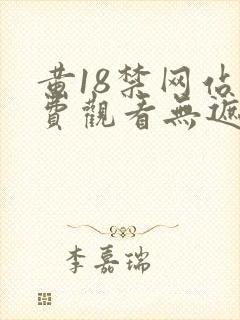 黄18禁网佔
費觀看無遮
李嘉瑞